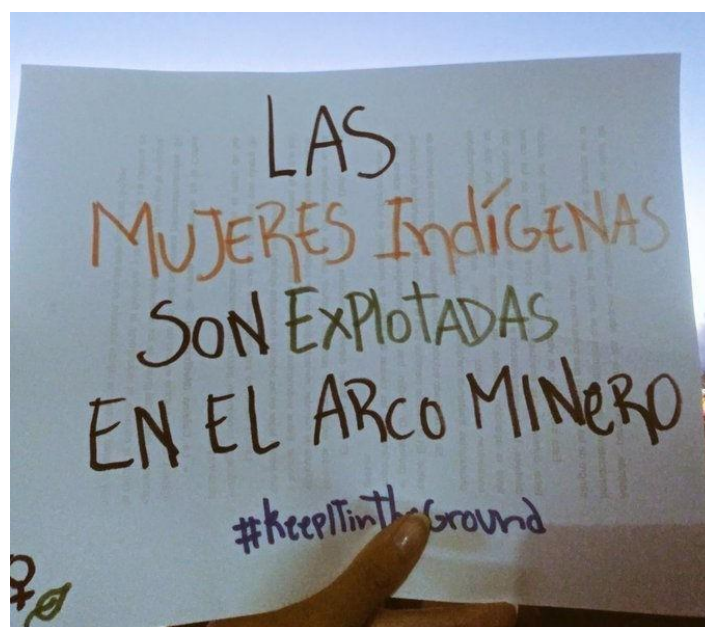 LAS
MUJERES INDÍGENAS
SON EXPLOTADAS
EN EL ARCO MINERO
#KeepITintheGround